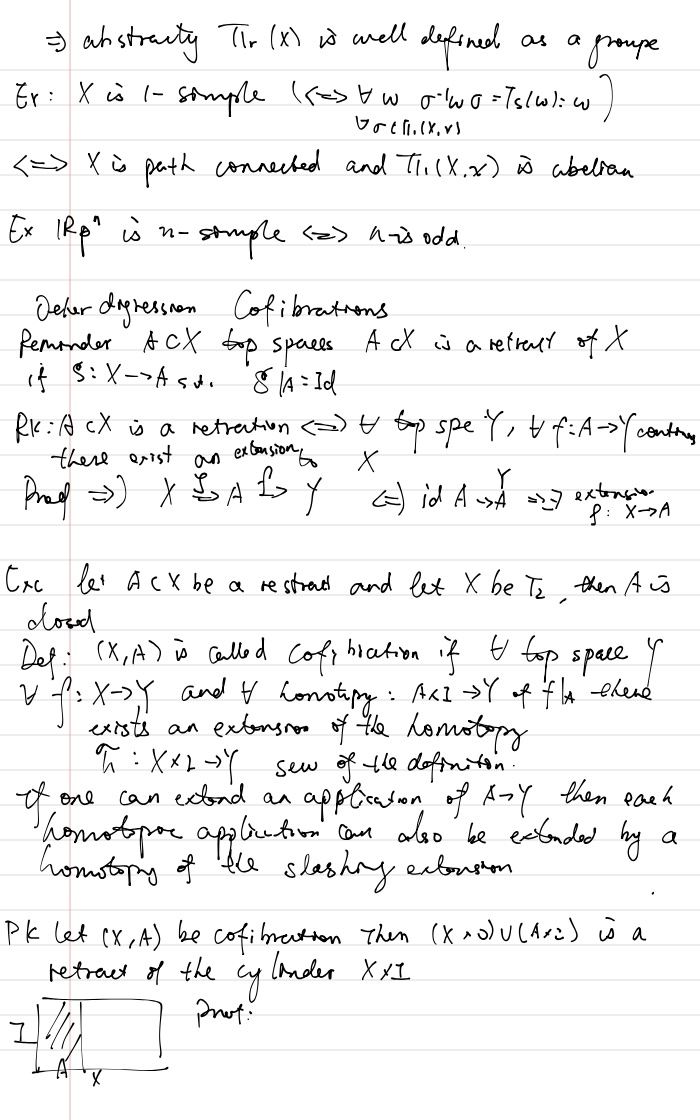 ⇒ abstractly Πr (X) is well defined as a groupe
Ex: X is 1-simple (⇐⇒ ∀ w σ⁻¹wσ = Ts(w) = w)
∀ σ ∈ Π₁(X,x)
⇐⇒ X is path connected and Π₁(X,x) is abelian
Ex |Rpⁿ is n-simple ⇐⇒ n is odd.
digression Cofibrations
Reminder A⊂X top spaces A⊂X is a retract of X
if S: X→A s.t. S|A = Id
RK: A⊂X is a retration ⇐⇒ ∀ top spe Y, ∀ f: A→Y
there exist an extension to X
Proof ⇒) X →ᵖ A →ᶠ Y ⇐) id A → A ⇒ ∃ extension
ρ: X→A
Exc let A⊂X be a restract and let X be T₂, then A is
closed
Def: (X,A) is called cofibration if ∀ top space Y
∀ f: X→Y and ∀ homotopy: A×I → Y of f|A there
exists an extension of the homotopy
h̃ : X×I →Y of the definiton.
If one can extend an application of A→Y then each
homotopoe application can also be extended by a
homotopy of the extension
RK let (X,A) be cofibration Then (X×0)∪(A×I) is a
retract of the cylinder X×I
proof:
I
A X